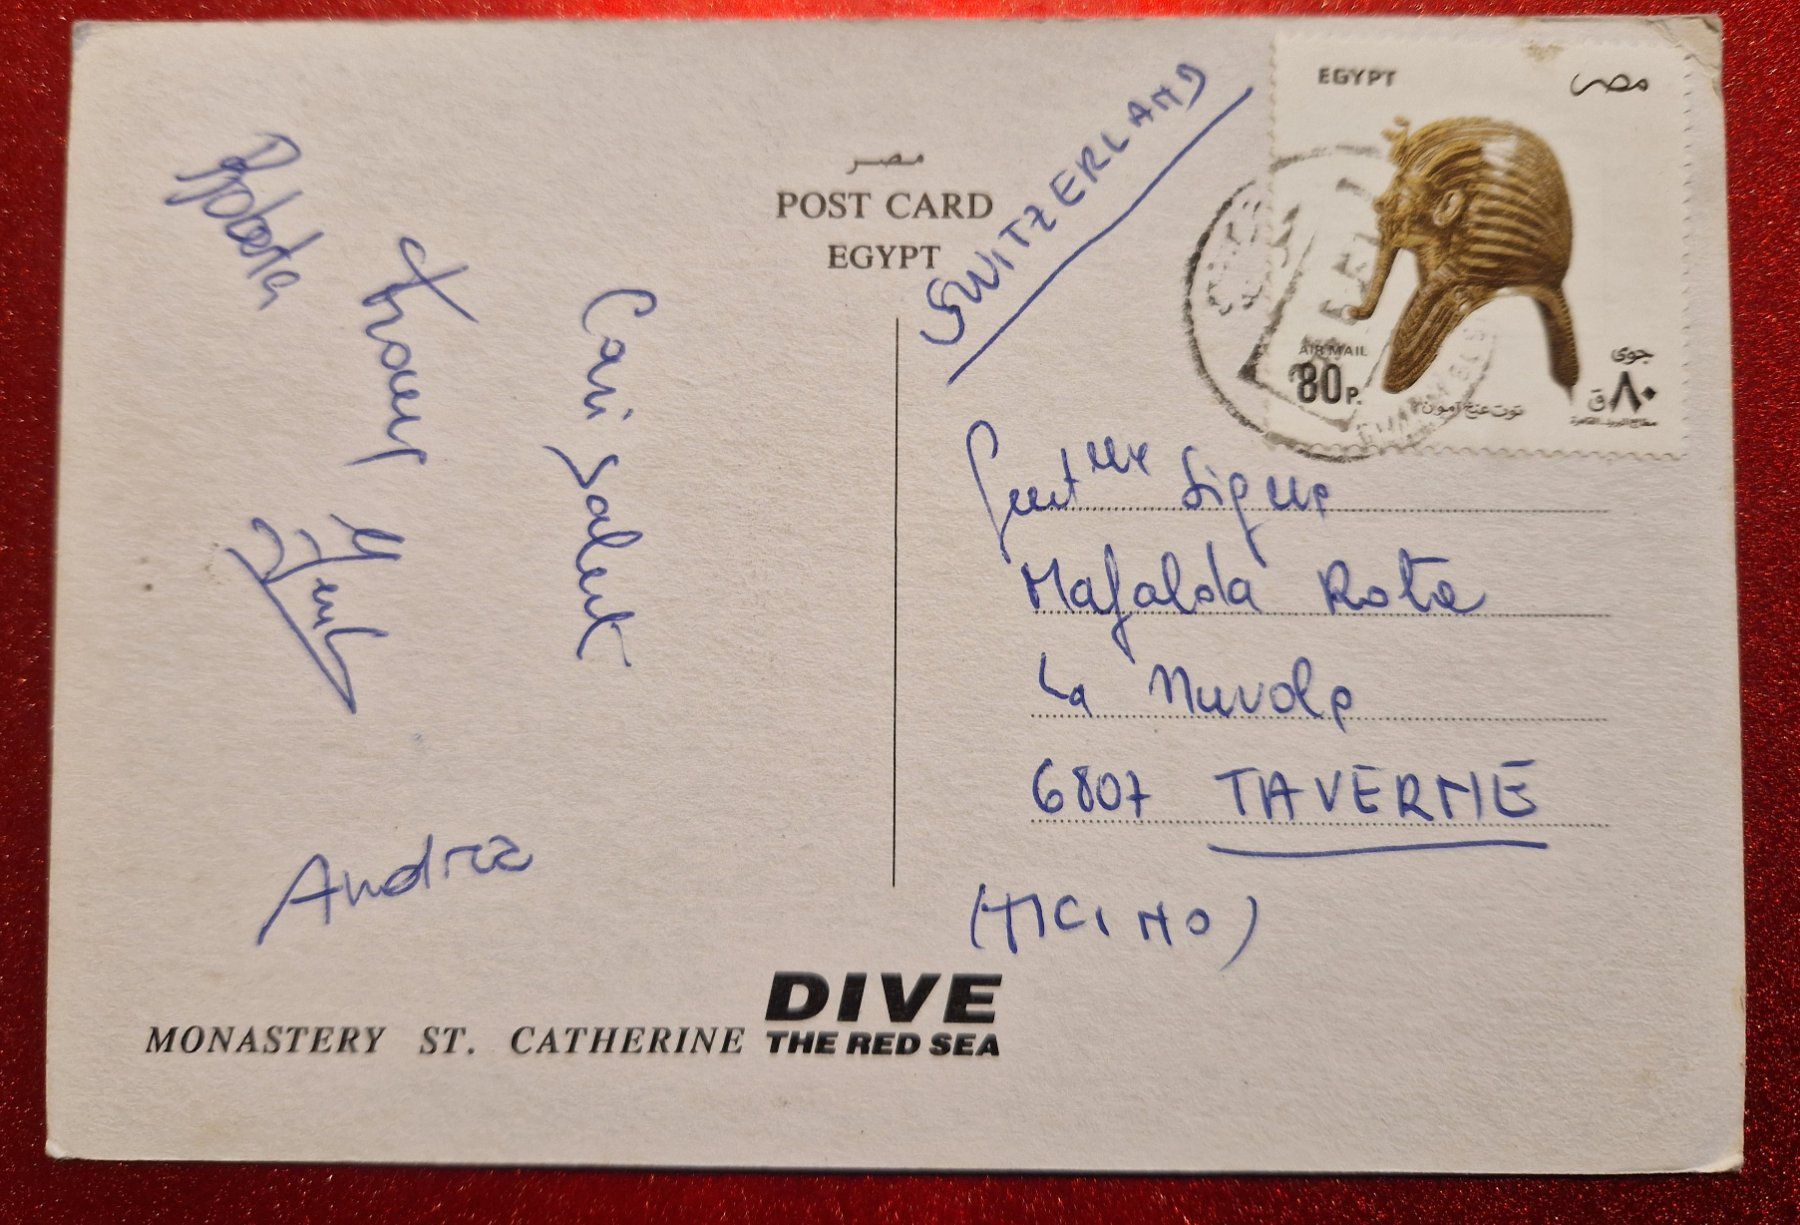 Cari saluti
Roberta
Andrea
مصر
POST CARD
EGYPT
SWITZERLAND
EGYPT
مصر
AIR MAIL
80P.
جوى
٨٠ق
توت عنخ آمون
Gent.ma Sig.ra
Mafalda Rota
La Nuvola
6807 TAVERNE
(TICINO)
MONASTERY ST. CATHERINE
DIVE
THE RED SEA